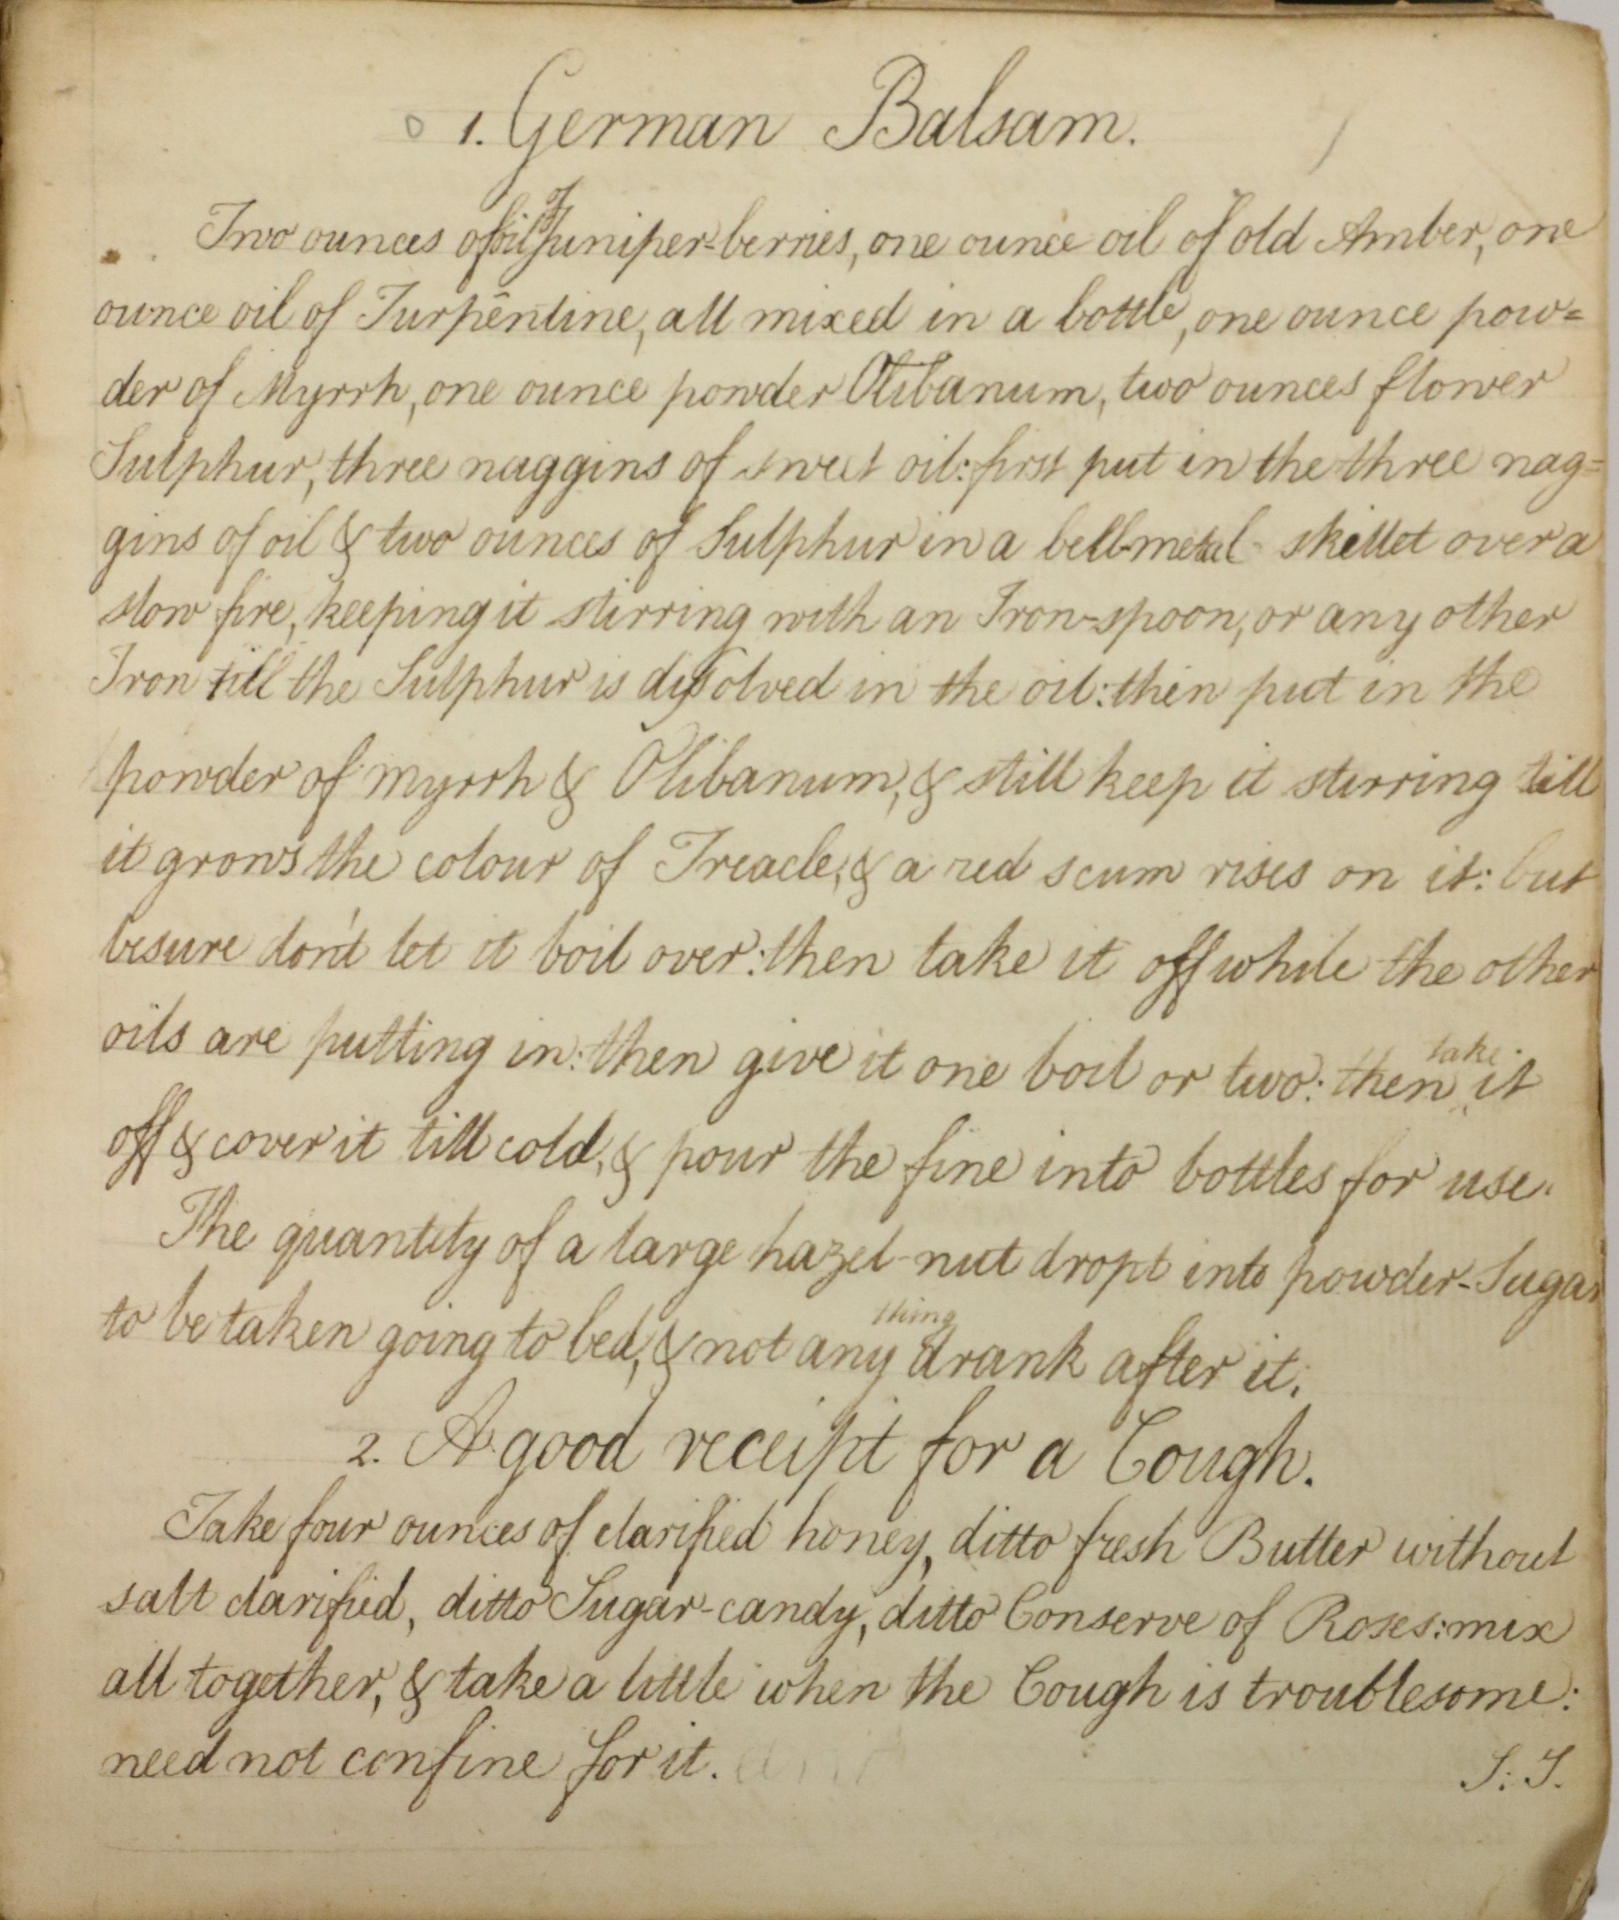 1. German Balsam.
Two ounces of oil of Juniper-berries, one ounce oil of old Amber, one
ounce oil of Turpentine, all mixed in a bottle, one ounce pow=
der of Myrrh, one ounce powder Olibanum, two ounces flower
Sulphur, three naggins of sweet oil: first put in the three nag=
gins of oil & two ounces of Sulphur in a bell-metal skillet over a
slow fire, keeping it stirring with an Iron-spoon, or any other
Iron till the Sulphur is dissolved in the oil: then put in the
powder of myrrh & Olibanum, & still keep it stirring till
it grows the colour of Treacle, & a red scum rises on it: but
besure don't let it boil over: then take it off while the other
oils are putting in: then give it one boil or two: then take it
off & cover it till cold, & pour the fine into bottles for use.
The quantity of a large hazel-nut dropt into powder-Sugar
to be taken going to bed, & not any thing drank after it.
2. A good receipt for a Cough.
Take four ounces of clarified honey, ditto fresh Butter without
salt clarified, ditto Sugar-candy, ditto Conserve of Roses: mix
all together, & take a little when the Cough is troublesome:
need not confine for it.